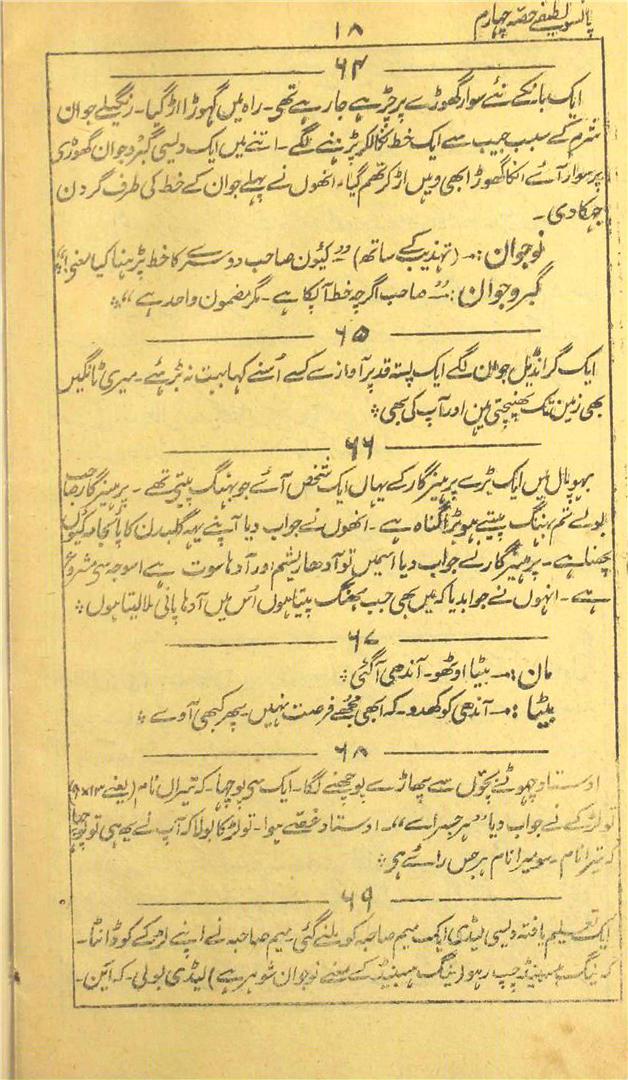 پانسو لطیفے حصہ چہارم
۱۸
۶۴
ایک بانکے نئے سوار گھوڑے پر چڑہے جا رہے تھی۔ راہ میں گہوڑا اڑ گیا۔ رنگیلے جوان
شرم کے سبب جیب سے ایک خط نکالکر پڑہنے لگے۔ اتنے میں ایک دلیسی گبرو جوان گھوڑی
پر سوار آئے انکا گھوڑا بھی وہیں اڑ کر تھم گیا، انھوں نے پہلے جوان کے خط کی طرف گردن
جہکا دی۔
نوجوان :۔ (تہذیب کے ساتھ) ”کیوں صاحب دوسرے کا خط پڑہنا کیا معنی؟“
گبرو جوان :۔ ”صاحب اگرچہ خط آپکا ہے۔ مگر مضمون واحد ہے“
۶۵
ایک گرانڈیل جوان لگے ایک پستہ قد پر آوازے کسے اُسنے کہا بہت نہ بڑہئے۔ میری ٹانگیں
بھی زمین تک پہنچتی ہیں اور آپ کی بھی
۶۶
بہوپال میں ایک بڑے پرہیزگار کے یہاں ایک شخص آئے جو بہنگ پیتے تھے۔ پرہیزگار صاحب
بولے تم بہنگ پیتے ہو بڑا گناہ ہے۔ انھوں نے جواب دیا آپنے یہہ گلبدن کا پائجامہ کیوں
پہنا ہے۔ پرہیزگار نے جواب دیا اسمیں تو آدھا ریشم اور آدہا سوت ہے اسوجہ سے مشروع
ہے۔ انہوں نے جوابدیا کہ میں بھی جب بھنگ پیتا ہوں اُس میں آدہا پانی ملا لیتا ہوں
۶۷
ماں :۔ بیٹا اوٹھو۔ آندھی آ گئی
بیٹا :۔ آندھی کو کھدو۔ کہ ابھی مجھے فرصت نہیں۔ پھر کبھی آوے
۶۸
اوستاد چھوٹے بچوں سے پھاڑے پوچھنے لگا۔ ایک سے پوچہا۔ کہ تیراں نام (یعنے ۱۳×۹)
تو لڑکے نے جواب دیا ”ہر جس رائے“۔ اوستاد غصّے ہوا۔ تو لڑکا بولا کہ آپ نے یہ ہی تو پوچہا
کہ تیرا نام۔ سو میرا نام ہرجس رائے ہو
۶۹
ایک تعلیم یافتہ دلیسی لیڈی ایک میم صاحبہ کو ملنے گئی۔ میم صاحبہ نے اپنے لڑکے کو ڈانٹا۔
کہ ینگ ہسبنیڈ چپ رہو (ینگ ہسبنیڈ کے معنے نوجوان شوہر ہے) لیڈی بولی۔ کہ ایں۔